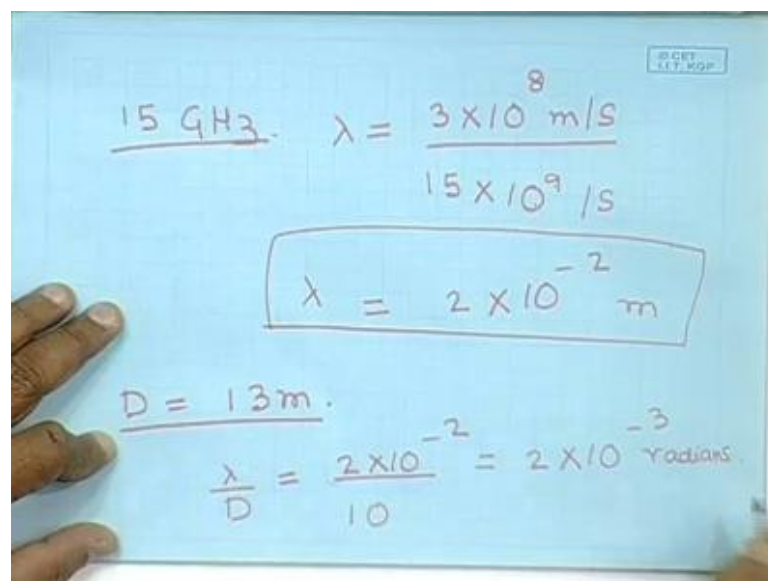 © CET
I.I.T. KGP
15 GHz. λ = 3×10⁸ m/s
15×10⁹ /s
λ = 2×10⁻² m
D = 13m.
λ/D = 2×10⁻²/10 = 2×10⁻³ radians.